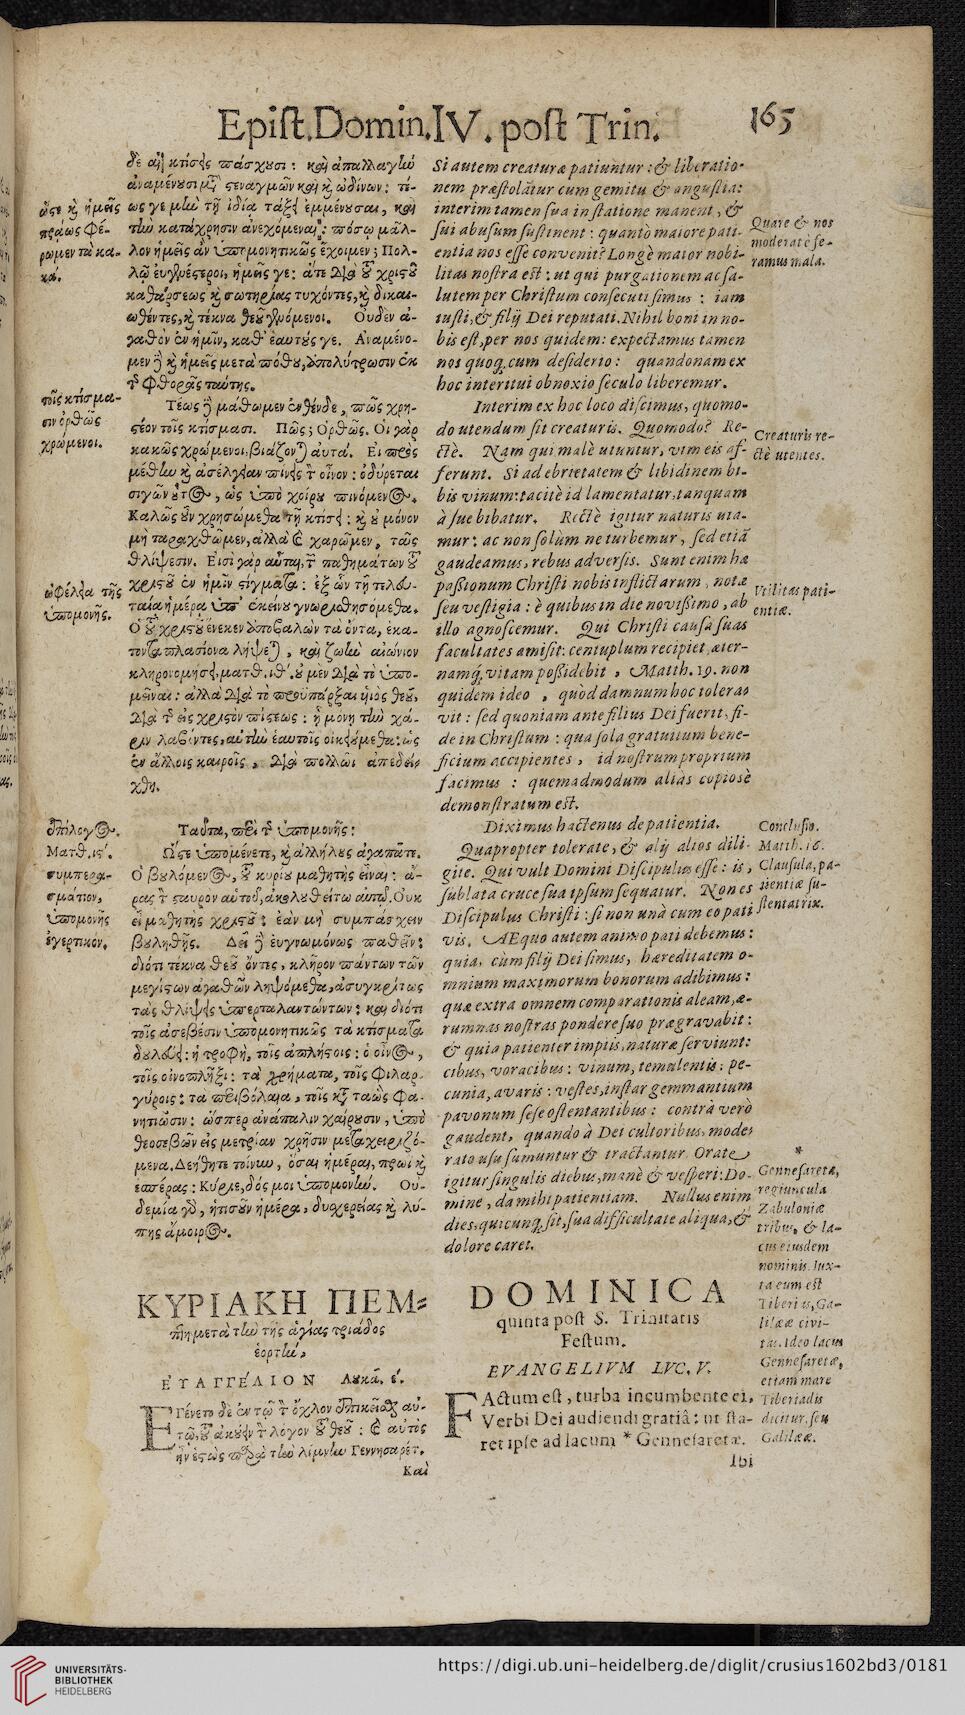 Epist. Domin. IV. post Trin. 165
δὲ αἱ κτίσεις πάσχουσι: καὶ ἀπαλλαγὴν
ἀναμένουσι μετὰ στεναγμῶν καὶ ὠδίνων: τέ-
ως γε μὴν τῇ ἰδίᾳ τάξει ἐμμένουσαι, καὶ
τὴν κατάχρησιν ἀνεχόμεναι: πόσῳ μᾶλ-
λον ἡμεῖς ἂν ὑπομονητικῶς ἔχοιμεν; Πολ-
λῷ εὐγενέστεροι, ἡμεῖς γε: ἅτε διὰ τοῦ χριστοῦ
καθάρσεως καὶ σωτηρίας τυχόντες, καὶ δικαι-
ωθέντες, καὶ τέκνα θεοῦ γενόμενοι. Οὐδὲν ἀ-
γαθὸν ἐν ἡμῖν, καθ' ἑαυτούς γε. Ἀναμένο-
μεν δὲ καὶ ἡμεῖς μετὰ πόθου, ἀπολύτρωσιν ἐκ
τῆς φθορᾶς ταύτης.
Τέως δὲ μάθωμεν ἐνθένδε, πῶς χρη-
στέον τοῖς κτίσμασι. Πῶς; Ὀρθῶς. Οἱ γὰρ
κακῶς χρώμενοι, βιάζονται αὐτά. Εἰ πρὸς
μέθην καὶ ἀσέλγειαν πίνεις τὸν οἶνον: ὀδύρεται
σιγῶν οὗτος, ὡς ὑπὸ χοίρου πινόμενος.
Καλῶς οὖν χρησώμεθα τῇ κτίσει: καὶ οὐ μόνον
μὴ ταραχθῶμεν, ἀλλὰ καὶ χαρῶμεν, ταῖς
θλίψεσιν. Εἰσὶ γὰρ αὗται, τῶν παθημάτων τοῦ
χριστοῦ ἐν ἡμῖν στίγματα: ἐξ ὧν τῇ τελευ-
ταίᾳ ἡμέρᾳ ὑπ' ἐκείνου γνωρισθησόμεθα.
Ὁ τοῦ χριστοῦ ἕνεκεν ἀποβαλὼν τὰ ὄντα, ἑκα-
τονταπλασίονα λήψεται, καὶ ζωὴν αἰώνιον
κληρονομήσει. ματθ. ιθ΄. οὐ μὲν διὰ τὸ ὑπο-
μεῖναι: ἀλλὰ διὰ τὸ προϋπάρξαι υἱὸς θεοῦ,
διὰ τῆς εἰς χριστὸν πίστεως: ᾗ μόνῃ τὴν χά-
ριν λαβόντες, αὐτὴν ἑαυτοῖς οἰκειούμεθα: ὡς
ἐν ἄλλοις καιροῖς, διὰ πολλῶν ἀπεδεί-
χθη.
Ταῦτα, περὶ τῆς ὑπομονῆς:
Ὥστε ὑπομένετε, καὶ ἀλλήλους ἀγαπᾶτε.
Ὁ βουλόμενος, τοῦ κυρίου μαθητὴς εἶναι: ἄ-
ρας τὸν σταυρὸν αὐτοῦ, ἀκολουθείτω αὐτῷ. Οὐκ
εἶ μαθητὴς χριστοῦ: ἐὰν μὴ συμπάσχειν
βουληθῇς. Δεῖ δὲ εὐγνωμόνως παθεῖν:
διότι τέκνα θεοῦ ὄντες, κλῆρον πάντων τῶν
μεγίστων ἀγαθῶν ληψόμεθα, ἀσυγκρίτως
τὰς θλίψεις ὑπερταλαντώντων: καὶ διότι
τοῖς ἀσεβέσιν ὑπομονητικῶς τὰ κτίσματα
δουλεύει: ἡ τροφὴ, τοῖς ἀπλήστοις: ὁ οἶνος,
τοῖς οἰνοπλῆξι: τὰ χρήματα, τοῖς φιλαρ-
γύροις: τὰ περιβόλαια, τοῖς κατὰ ταὼς φα-
νητιῶσιν: ὥσπερ ἀνάπαλιν χαίρουσιν, ὑπὸ
θεοσεβῶν εἰς μετρίαν χρῆσιν μεταχειριζό-
μενα. Δεήθητε τοίνυν, ὅσαι ἡμέραι, πρωὶ καὶ
ἑσπέρας: Κύριε, δός μοι ὑπομονήν. Οὐ-
δεμία γὰρ, ἥτις οὖν ἡμέρα, δυσχερείας καὶ λύ-
πης ἄμοιρος.
ὥστε καὶ ἡμεῖς
πράως φέ-
ρωμεν τὰ κα-
κά.
τοῖς κτίσμα-
σιν ὀρθῶς
χρώμενοι.
ὠφέλεια τῆς
ὑπομονῆς.
ἐπίλογος.
Ματθ. ις΄.
συμπερα-
σμάτιον,
ὑπομονῆς
ἐγερτικόν.
Si autem creaturæ patiuntur: & liberatio-
nem præstolātur cum gemitu & angustia:
interim tamen sua in statione manent, &
sui abusum sustinent: quantò maiore pati-
entia nos esse convenit? Longè maior nobi-
litas nostra est: ut qui purgationem ac sa-
lutem per Christum consecuti simus: iam
iusti, & filij Dei reputati. Nihil boni in no-
bis est, per nos quidem: expectamus tamen
nos quoq; cum desiderio: quandonam ex
hoc interitui obnoxio seculo liberemur.
Interim ex hoc loco discimus, quomo-
do utendum sit creaturis. Quomodo? Re-
ctè. Nam qui malè utuntur, vim eis af-
ferunt. Si ad ebrietatem & libidinem bi-
bis vinum: tacitè id lamentatur, tanquam
à sue bibatur. Rectè igitur naturis uta-
mur: ac non solùm ne turbemur, sed etiā
gaudeamus, rebus adversis. Sunt enim hæ
passionum Christi nobis inflictarum, notæ
seu vestigia: è quibus in die novissimo, ab
illo agnoscemur. Qui Christi causa suas
facultates amisit: centuplum recipiet, æter-
namq; vitam possidebit, Matth. 19. non
quidem ideo, quòd damnum hoc tolerav
vit: sed quoniam ante filius Dei fuerit, fi-
de in Christum: qua sola gratuitum bene-
ficium accipientes, id nostrum proprium
facimus: quemadmodum aliàs copiosè
demonstratum est.
Diximus hactenus de patientia.
Quapropter tolerate, & alij alios dili-
gite. Qui vult Domini Discipulus esse: is,
sublata cruce sua ipsum sequatur. Non es
Discipulus Christi: si non unà cum eo pati
vis. AEquo autem animo pati debemus:
quia, cùm filij Dei simus, hæreditatem o-
mnium maximorum bonorum adibimus:
quæ extra omnem comparationis aleam, æ-
rumnas nostras pondere suo prægravabit:
& quia patienter impiis, naturæ serviunt:
cibus, voracibus: vinum, temulentis: pe-
cunia, avaris: vestes, instar gemmantium
pavonum sese ostentantibus: contrà verò
gaudent, quando à Dei cultoribus, mode-
rato usu sumuntur & tractantur. Orate
igitur singulis diebus, manè & vesperi: Do-
mine, da mihi patientiam. Nullus enim
dies, quicunq; sit, sua difficultate aliqua, &
dolore caret.
Quare & nos
moderatè fe-
ramus mala.
Creaturis re-
ctè utentes.
Utilitas pati-
entiæ.
Conclusio.
Matth. 16.
Clausula, pa-
tientiæ su-
stentatrix.
*
Gennesaretæ,
regiuncula
Zabuloniæ
tribus, & la-
cus eiusdem
nominis. Iux-
ta eum est
Tiberias, Ga-
lilææ civi-
tas. Ideo lacus
Gennesaretæ,
etiam mare
Tiberiadis
dicitur, seu
Galilææ.
ΚΥΡΙΑΚΗ ΠΕΜ-
πτη μετὰ τὴν τῆς ἁγίας τριάδος
ἑορτήν.
ΕΥΑΓΓΕΛΙΟΝ Λουκᾶ, ε΄.
ΕΓένετο δὲ ἐν τῷ τὸν ὄχλον ἐπικεῖσθαι αὐ-
τῷ, τοῦ ἀκούειν τὸν λόγον τοῦ θεοῦ: καὶ αὐτὸς
ἦν ἑστὼς παρὰ τὴν λίμνην Γεννησαρέτ.
Καὶ
DOMINICA
quinta post S. Trinitatis
Festum.
EVANGELIVM LVC. V.
FActum est, turba incumbente ei,
Verbi Dei audiendi gratiâ: ut sta-
ret ipse ad lacum * Gennesaretæ.
Ibi
UNIVERSITÄTS-
BIBLIOTHEK
HEIDELBERG
https://digi.ub.uni-heidelberg.de/diglit/crusius1602bd3/0181